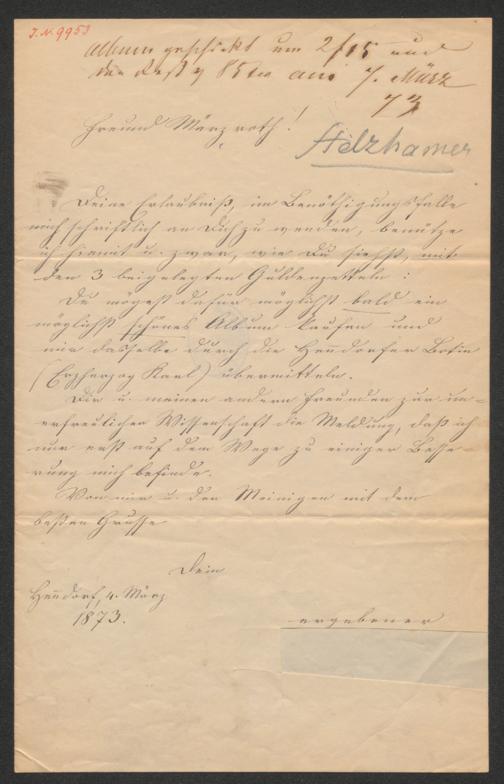 J.N. 9953
Album geschickt um 2/15 und
den Rest 85 am 7. März
73
Freund Märzroth!
Stelzhamer
Deine Erlaubniß, im Benöthigungsfalle
mich schriftlich an Dich zu wenden, benütze
ich hiemit u. zwar, wie Du siehst, mit
den 3 beigelegten Guldenzetteln:
Du mögest dafür möglichst bald ein
möglichst schönes Album kaufen und
mir dasselbe durch die Hendorfer Botin
(Erzherzog Karl) übermitteln.
Dir u. meinen andern Freunden zur un-
erfreulichen Wissenschaft die Meldung, daß ich
nur erst auf dem Wege zu einiger Besse-
rung mich befinde.
Von mir u. den Meinigen mit dem
besten Grusse
Dein
Hendorf, 4. März
1873.
ergebener